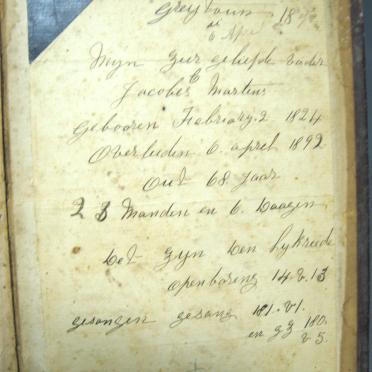 Greytown 18
6 Apr
Myn zeer geliefde vader
Jacobes C Martins
Gebooren February. 2 1824
Overleeden 6. april 1892
Out 68. Jaar
2 Manden en 6. Daagen
Let zyn Den lykreede
openbareng 14. v. 13
gesongen gesang 181. v1.
en gz 180.
v 5.